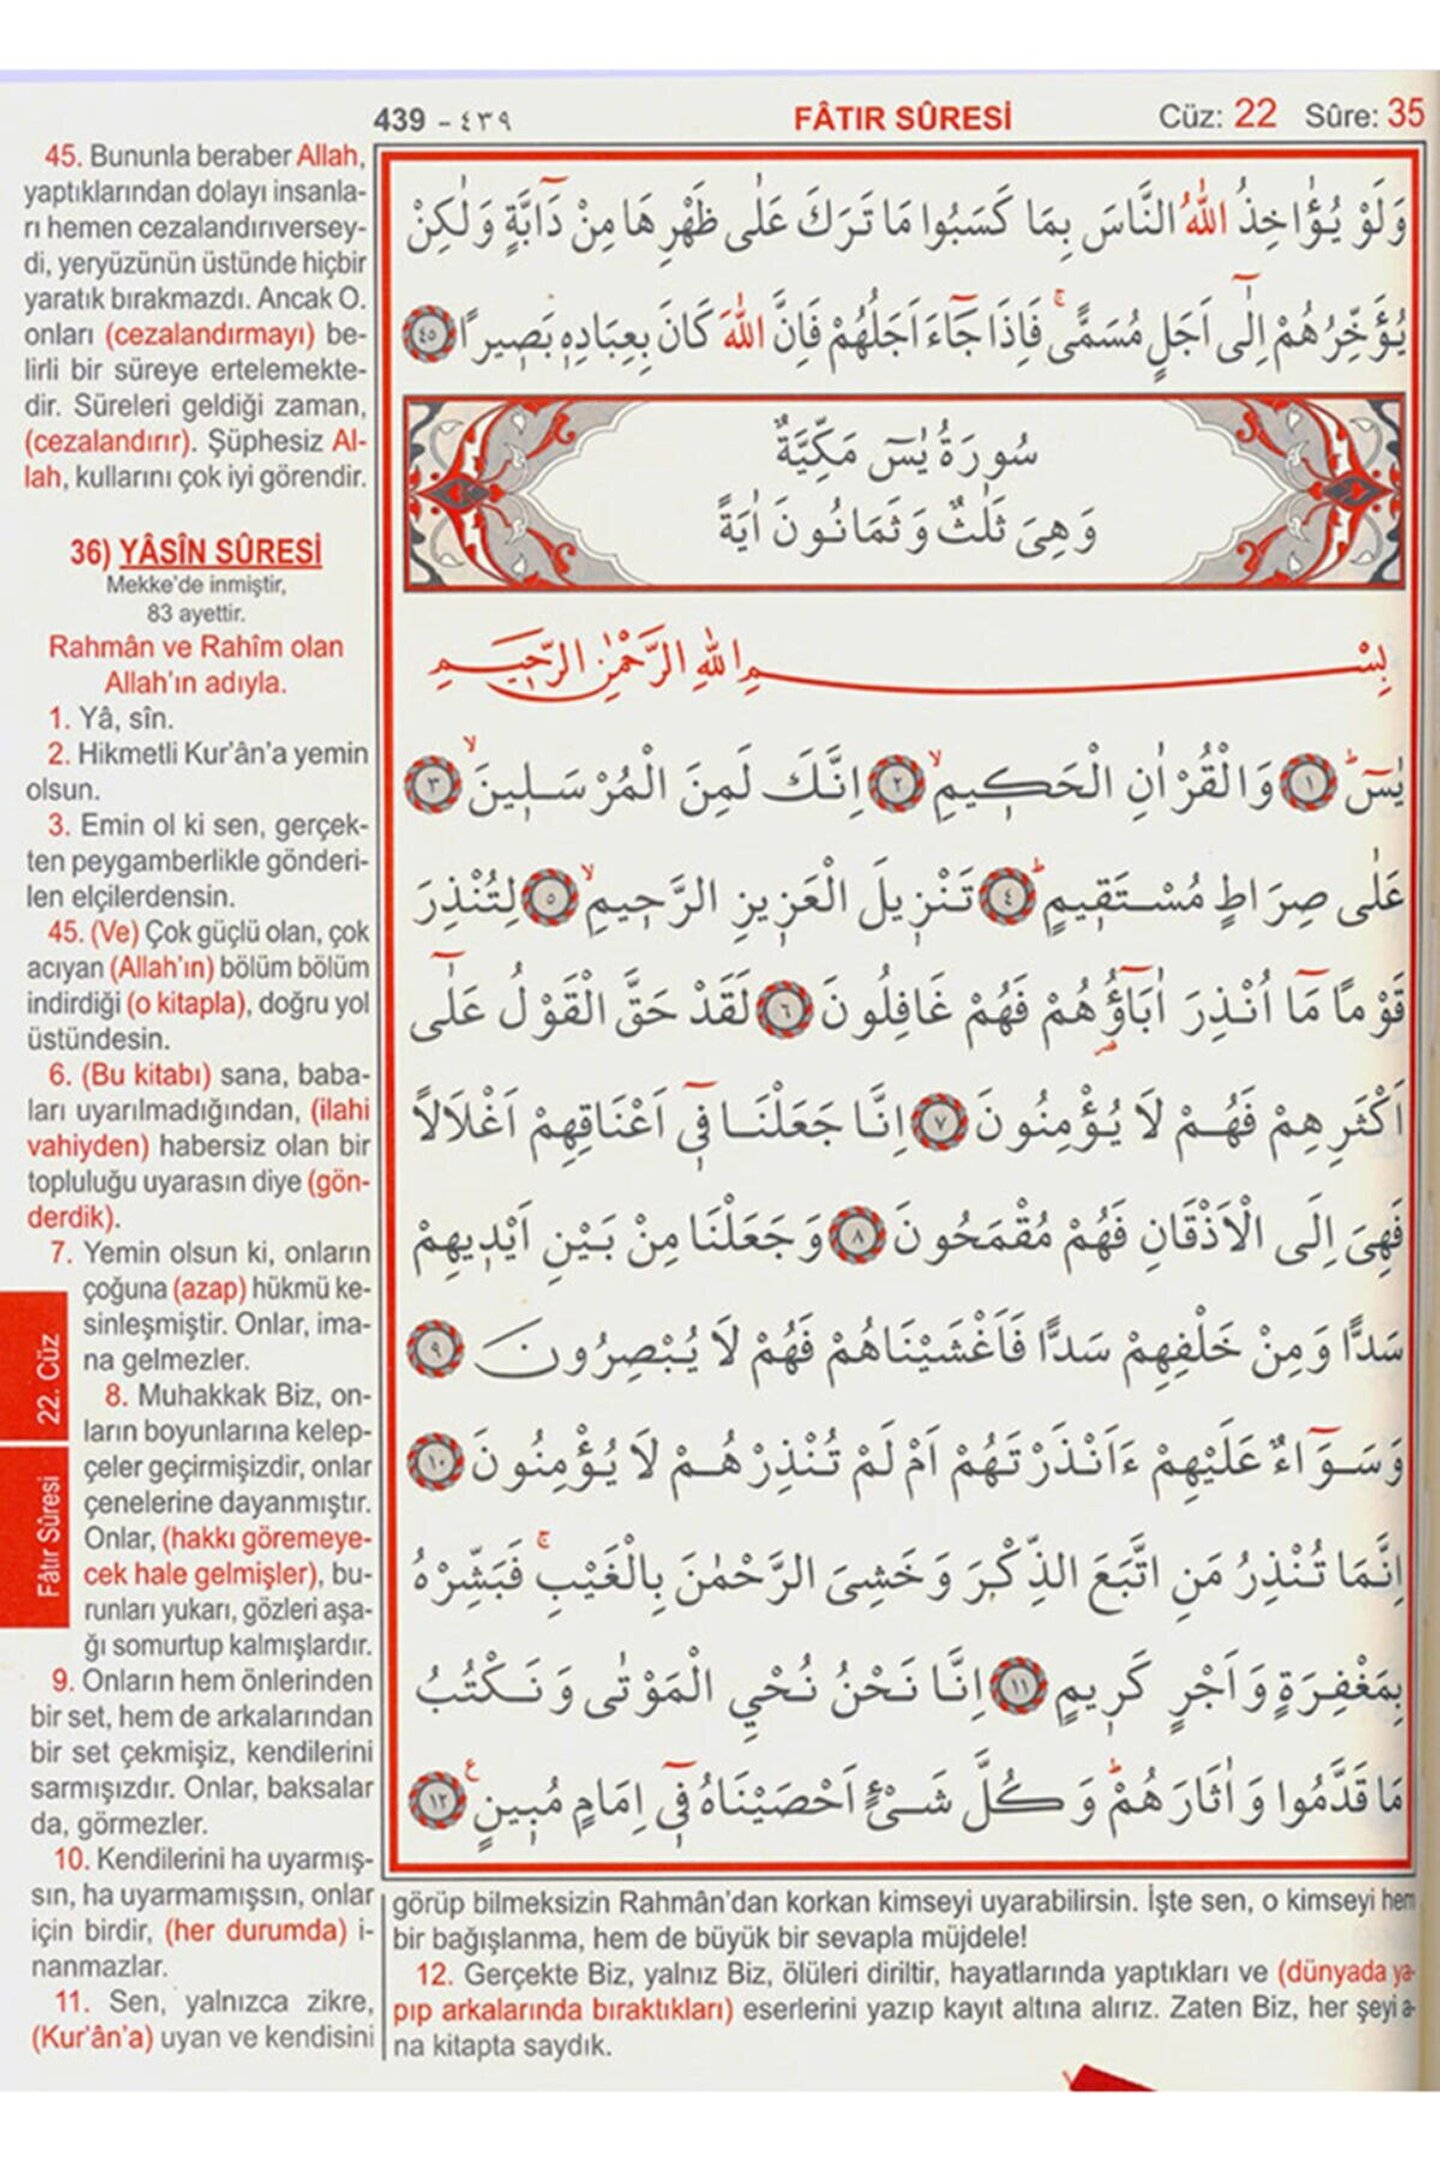 439 - ٤٣٩ FÂTIR SÛRESİ Cüz: 22 Sûre: 35
45. Bununla beraber Allah,
yaptıklarından dolayı insanla-
rı hemen cezalandırıversey-
di, yeryüzünün üstünde hiçbir
yaratık bırakmazdı. Ancak O.
onları (cezalandırmayı) be-
lirli bir süreye ertelemekte-
dir. Süreleri geldiği zaman,
(cezalandırır). Şüphesiz Al-
lah, kullarını çok iyi görendir.
36) YÂSÎN SÛRESİ
Mekke'de inmiştir,
83 ayettir.
Rahmân ve Rahîm olan
Allah'ın adıyla.
1. Yâ, sîn.
2. Hikmetli Kur'ân'a yemin
olsun.
3. Emin ol ki sen, gerçek-
ten peygamberlikle gönderi-
len elçilerdensin.
45. (Ve) Çok güçlü olan, çok
acıyan (Allah'ın) bölüm bölüm
indirdiği (o kitapla), doğru yol
üstündesin.
6. (Bu kitabı) sana, baba-
ları uyarılmadığından, (ilahi
vahiyden) habersiz olan bir
topluluğu uyarasın diye (gön-
derdik).
7. Yemin olsun ki, onların
çoğuna (azap) hükmü ke-
sinleşmiştir. Onlar, ima-
na gelmezler.
8. Muhakkak Biz, on-
ların boyunlarına kelep-
çeler geçirmişizdir, onlar
çenelerine dayanmıştır.
Onlar, (hakkı göremeye-
cek hale gelmişler), bu-
runları yukarı, gözleri aşa-
ğı somurtup kalmışlardır.
9. Onların hem önlerinden
bir set, hem de arkalarından
bir set çekmişiz, kendilerini
sarmışızdır. Onlar, baksalar
da, görmezler.
10. Kendilerini ha uyarmış-
sın, ha uyarmamışsın, onlar
için birdir, (her durumda) i-
nanmazlar.
11. Sen, yalnızca zikre,
(Kur'ân'a) uyan ve kendisini
görüp bilmeksizin Rahmân'dan korkan kimseyi uyarabilirsin. İşte sen, o kimseyi hem
bir bağışlanma, hem de büyük bir sevapla müjdele!
12. Gerçekte Biz, yalnız Biz, ölüleri diriltir, hayatlarında yaptıkları ve (dünyada ya-
pıp arkalarında bıraktıkları) eserlerini yazıp kayıt altına alırız. Zaten Biz, her şeyi a-
na kitapta saydık.
22. Cüz
Fâtır Sûresi
وَلَوْ يُؤَاخِذُ اللّٰهُ النَّاسَ بِمَا كَسَبُوا مَا تَرَكَ عَلٰى ظَهْرِهَا مِنْ دَٓابَّةٍ وَلٰكِنْ
يُؤَخِّرُهُمْ اِلٰٓى اَجَلٍ مُسَمًّىۚ فَاِذَا جَٓاءَ اَجَلُهُمْ فَاِنَّ اللّٰهَ كَانَ بِعِبَادِه۪ بَص۪يرًا ٤٥
سُورَةُ يٰسٓ مَكِّيَّةٌ
وَهِىَ ثَلٰثٌ وَثَمَانُونَ اٰيَةً
بِسْمِ اللّٰهِ الرَّحْمٰنِ الرَّح۪يمِ
يٰسٓ ۜ ١ وَالْقُرْاٰنِ الْحَك۪يمِۙ ٢ اِنَّكَ لَمِنَ الْمُرْسَل۪ينَۙ ٣
عَلٰى صِرَاطٍ مُسْتَق۪يمٍۜ ٤ تَنْز۪يلَ الْعَز۪يزِ الرَّح۪يمِۙ ٥ لِتُنْذِرَ
قَوْمًا مَٓا اُنْذِرَ اٰبَٓاؤُ۬هُمْ فَهُمْ غَافِلُونَ ٦ لَقَدْ حَقَّ الْقَوْلُ عَلٰٓى
اَكْثَرِهِمْ فَهُمْ لَا يُؤْمِنُونَ ٧ اِنَّا جَعَلْنَا ف۪ٓى اَعْنَاقِهِمْ اَغْلَالًا
فَهِىَ اِلَى الْاَذْقَانِ فَهُمْ مُقْمَحُونَ ٨ وَجَعَلْنَا مِنْ بَيْنِ اَيْد۪يهِمْ
سَدًّا وَمِنْ خَلْفِهِمْ سَدًّا فَاَغْشَيْنَاهُمْ فَهُمْ لَا يُبْصِرُونَ ٩
وَسَوَٓاءٌ عَلَيْهِمْ ءَاَنْذَرْتَهُمْ اَمْ لَمْ تُنْذِرْهُمْ لَا يُؤْمِنُونَ ١٠
اِنَّمَا تُنْذِرُ مَنِ اتَّبَعَ الذِّكْرَ وَخَشِىَ الرَّحْمٰنَ بِالْغَيْبِۚ فَبَشِّرْهُ
بِمَغْفِرَةٍ وَاَجْرٍ كَر۪يمٍ ١١ اِنَّا نَحْنُ نُحْيِ الْمَوْتٰى وَنَكْتُبُ
مَا قَدَّمُوا وَاٰثَارَهُمْۜ وَكُلَّ شَىْءٍ اَحْصَيْنَاهُ ف۪ٓى اِمَامٍ مُب۪ينٍ ع ١٢